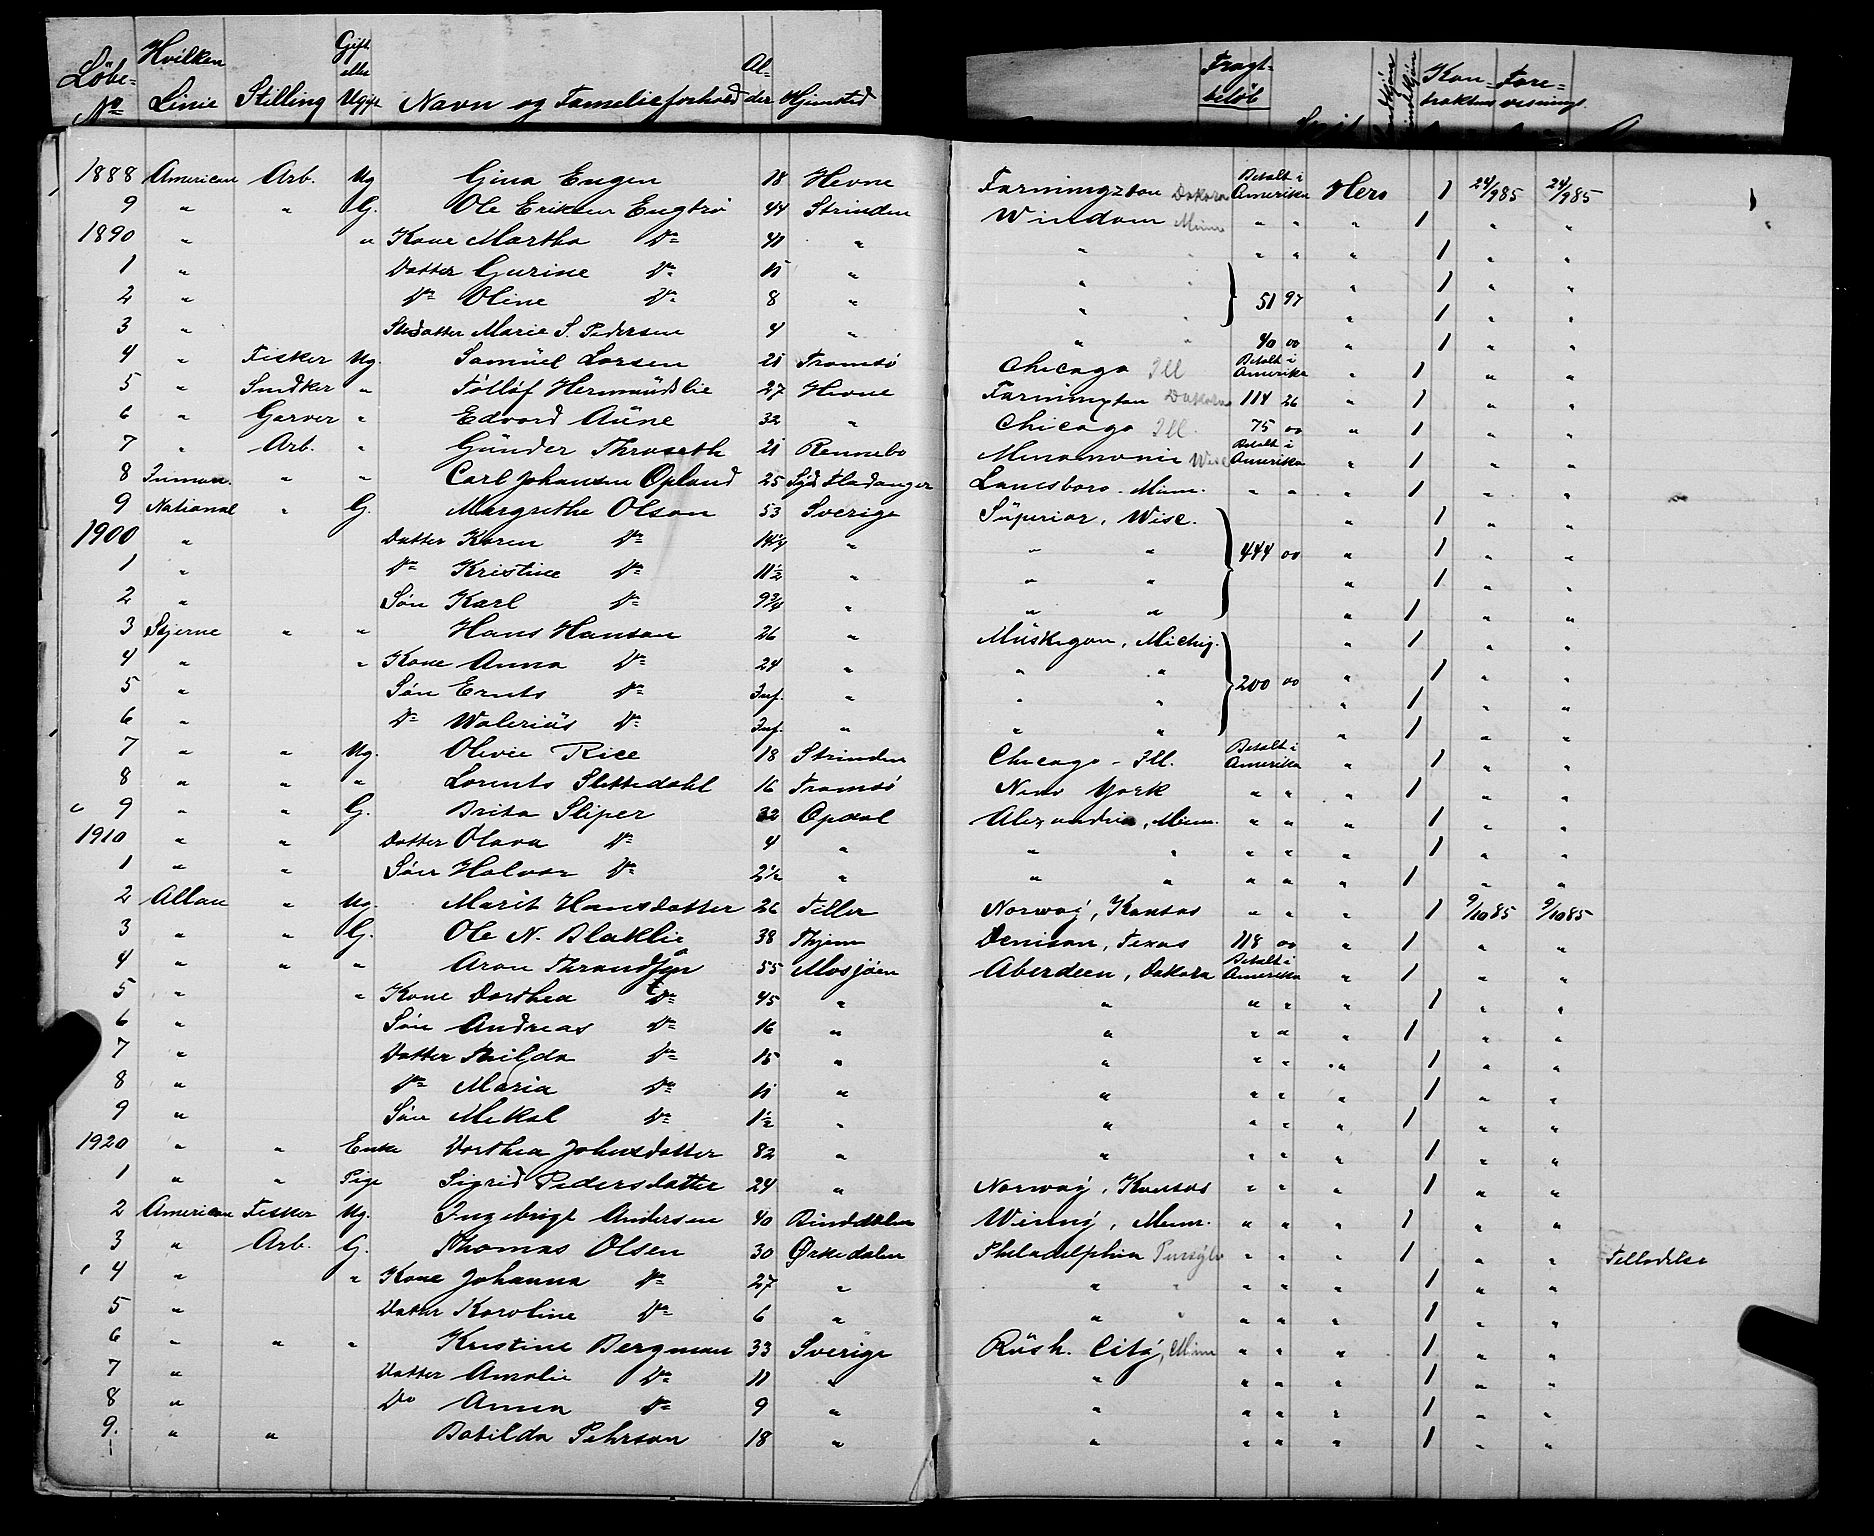 Löbe- No Hvilken Linie Stilling Gift eller Ugift Navn og Familieforhold Alder Hjemsted Fragt-beløb Kon-traktens Fore-visnings
1888 American Arb. Ug Gina Engen 18 Hevne Farmington Dakota Betalt i Amerika Hero 1 24/9 85 24/9 85
9 " " G. Ole Eriksen Engtrö 44 Strinden Windom Minn " " " 1 " "
1890 " " Kone Martha Do 41 " " " " " 1 " "
1 " Datter Gurine Do 11 " " " 1 " "
2 " Do Oline Do 8 " " 51 97 " 1 " "
3 " Stedatter Marie S. Pedersen 4 " " 40 00 " 1 " "
4 " Fisker Ug. Samüel Larsen 21 Tromsö Chicago Ill Betalt i Amerika " 1 " "
5 " Snedker " Tólløf Hermündslie 27 Hevne Farmington Dakota 114 26 " 1 " "
6 " Garver " Edvard Aüne 32 " Chicago Ill. 75 00 " 1 " "
7 " Arb. " Günder Thraseth 21 Rennebo Menomonie Wisc Betalt i Amerika " 1 " "
8 Inman. " " Carl Johansen Opland 25 Syd Fladanger Lanesboro. Minn. " " " 1 " "
9 National " G. Margrethe Olson 53 Sverige Süperior, Wisc. " 1 " "
1900 " Datter Karen Do 14 1/4 " " " 444 00 " 1 " "
1 " Do Kristine Do 11 1/2 " " " " 1 " "
2 " Søn Karl Do 9 3/4 " " " " 1 " "
3 Stjerne " " Hans Hanson 26 " Müskegon, Michig. " 1 " "
4 " " Kone Anna Do 24 " " " " 1 " "
5 " Søn Ernts Do Inf. " " " 200 00 " 1 " "
6 " Do Waleriüs Do Inf. " " " " 1 " "
7 " " Ug. Olivie Rice 18 Strinden Chicago - Ill. Betalt i Amerika " 1 " "
8 " " " Lorents Slettedahl 16 Tromsö New York " " " 1 " "
9 " " G. Brita Sliper 32 Opdal Alexandria, Minn. " " " 1 " "
1910 " " Datter Olava Do 4 " " " " " " 1 " "
1 " " Søn Halvor Do 2 1/2 " " " " " " 1 " "
2 Allan " Ug. Marit Hansdatter 26 Tiller Norway, Kansas " " " 1 9/10 85 9/10 85
3 " " G. Ole N. Blaklie 38 Denison, Texas 118 00 " 1 " "
4 " " " Aron 55 Mosjøen Aberdeen, Dakota Betalt i Amerika " 1 " "
5 " " Kone Dorthea Do 45 " " " " " 1 " "
6 " Søn Andreas Do 16 " " " " 1 " "
7 " Datter Do 15 " " " " " 1 " "
8 " Do Maria Do 11 " " " " " 1 " "
9 " Søn Mikal Do 1 1/2 " " " " " 1 " "
1920 " " Enke Dorthea Johnsdatter 82 " " " " " 1 " "
1 " " Pige Sigrid Pedersdatter 24 " Norway, Kansas " " " 1 " "
2 American Fisker Ug. Ingebrigt Andersen 40 Binddalen Minn. " " " 1 " "
3 " Arb. G. Thomas Olsen 30 Ørkedalen Philadelphia " " " 1 " "
4 " " Kone Johanna Do 27 " " " " " " 1 " "
5 " Datter Karoline Do 6 " " " " " " 1 " "
6 " " " Kristine Bergman 33 Sverige Rüsh. City, Minn " " " 1 " "
7 " Datter Amalie Do 11 " " " " " 1 " "
8 " Do Anna Do 9 " " " " " 1 " "
9. " " Botilda Pehrson 18 " " " " " 1 " "